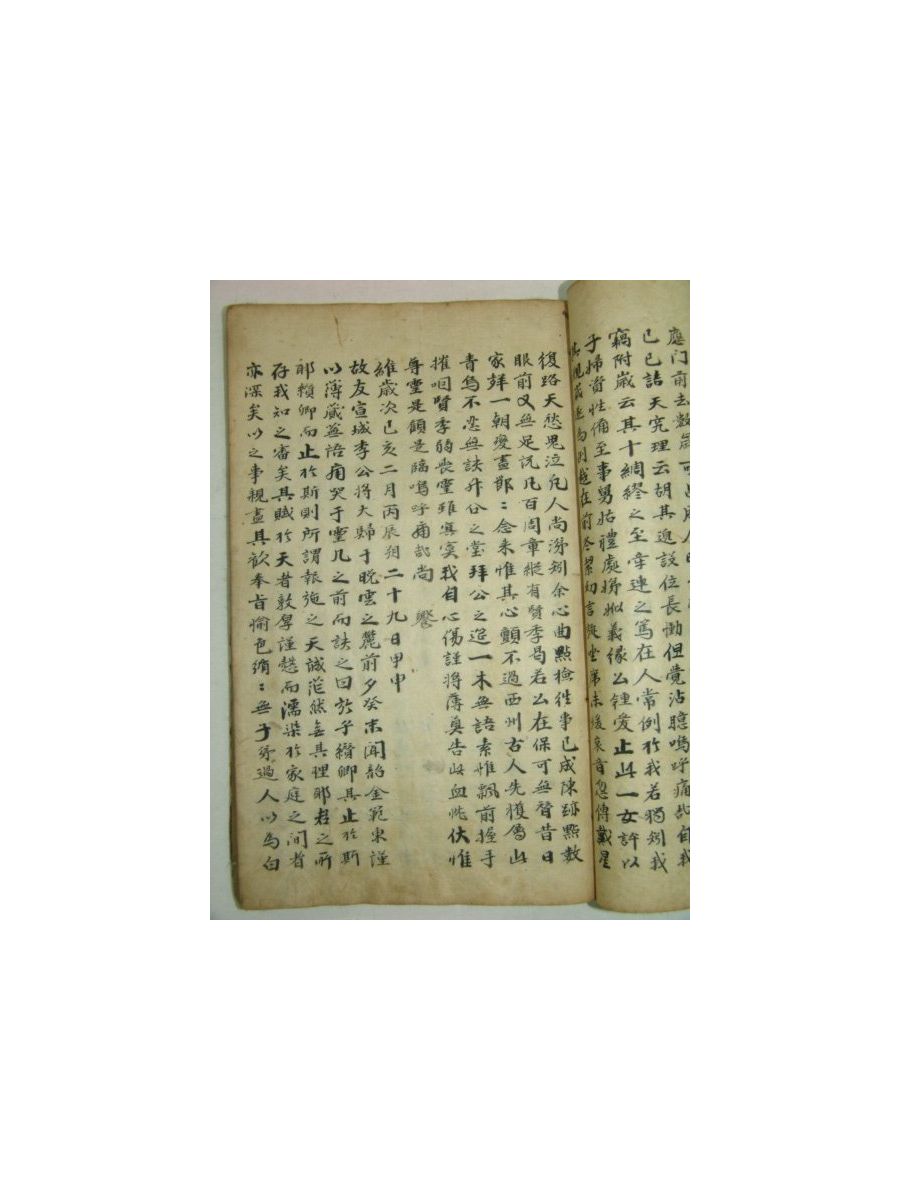 己已詰天究理云胡其通設位長慟但覺沾臆嗚呼痛哉自我
竊附歲云其十綢繆之至幸連之篤在人常例於我若獨矧我
子婦資性備至事舅姑禮處娣姒義緣公鍾愛止此一女許以
復路天愁鬼泣凡人尚涕矧余心曲點檢往事已成陳跡點數
眼前又無足說凡百周章縱有賢季曷若公在保可無替昔日
家鉾一朝變盡鄧〻念来惟其心顫不過西州古人先獲傷山
青鳥不恋無訣升公之堂拜公之筵一木無語素惟飄前握手
摧咽賢季鸱丧靈雖寞寞我自心傷謹将薄奠告此血忱伏惟
尊靈是顧是臨嗚呼痛哉尚饗
維歲次己亥二月丙辰朔二十九日甲申
故友宣城李公将大歸于晩雲之麓前夕癸未聞韶金範東謹
以薄蔵蕪語痛哭于靈几之前而訣之曰於乎纘卿其止於斯
耶纘卿而止於斯則所謂報施之天誠茫然無其理耶君之所
存我知之審矣其賦於天者敦厚謹慤而濡染於家庭之間者
亦深矣以之事親盡其歡奉旨愉色循〻無子弟過人以為白